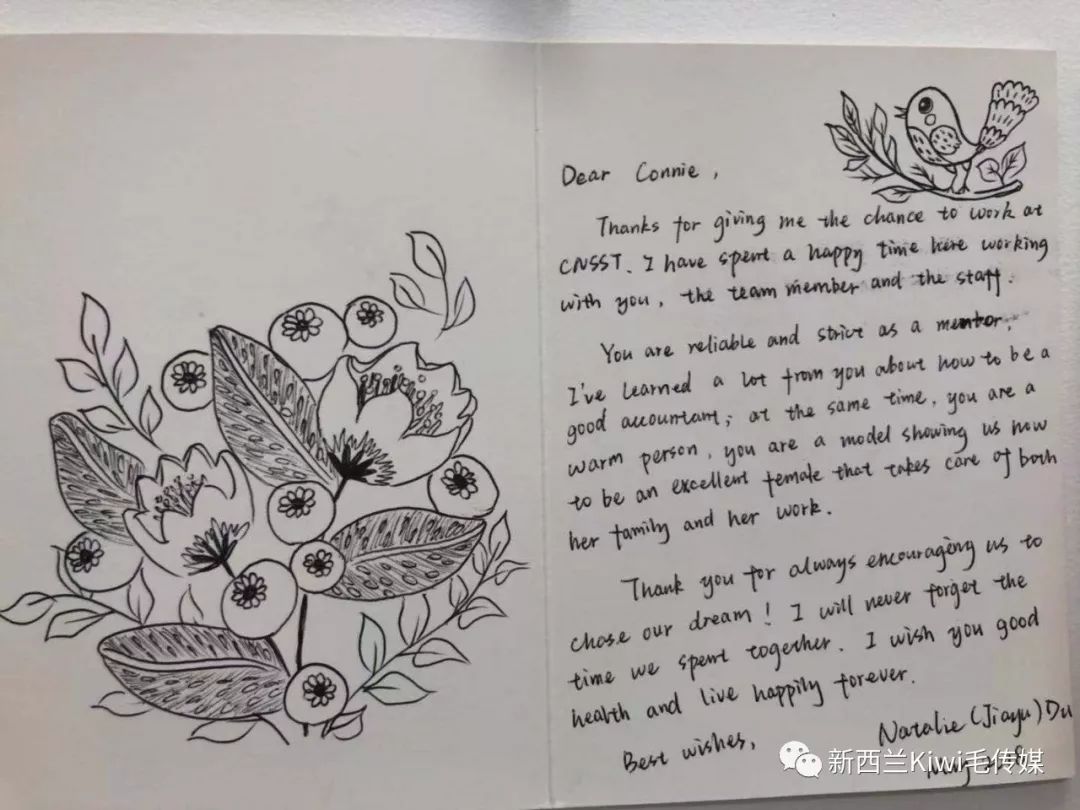 Dear Connie,
Thanks for giving me the chance to work at
CNSST. I have spent a happy time here working
with you, the team member and the staff.
You are reliable and strict as a mentor.
I've learned a lot from you about how to be a
good accountant; at the same time, you are a
warm person, you are a model showing us how
to be an excellent female that takes care of both
her family and her work.
Thank you for always encouraging us to
chase our dream! I will never forget the
time we spent together. I wish you good
health and live happily forever.
Best wishes,
Natalie (Jiayu) Du
新西兰Kiwi毛传媒